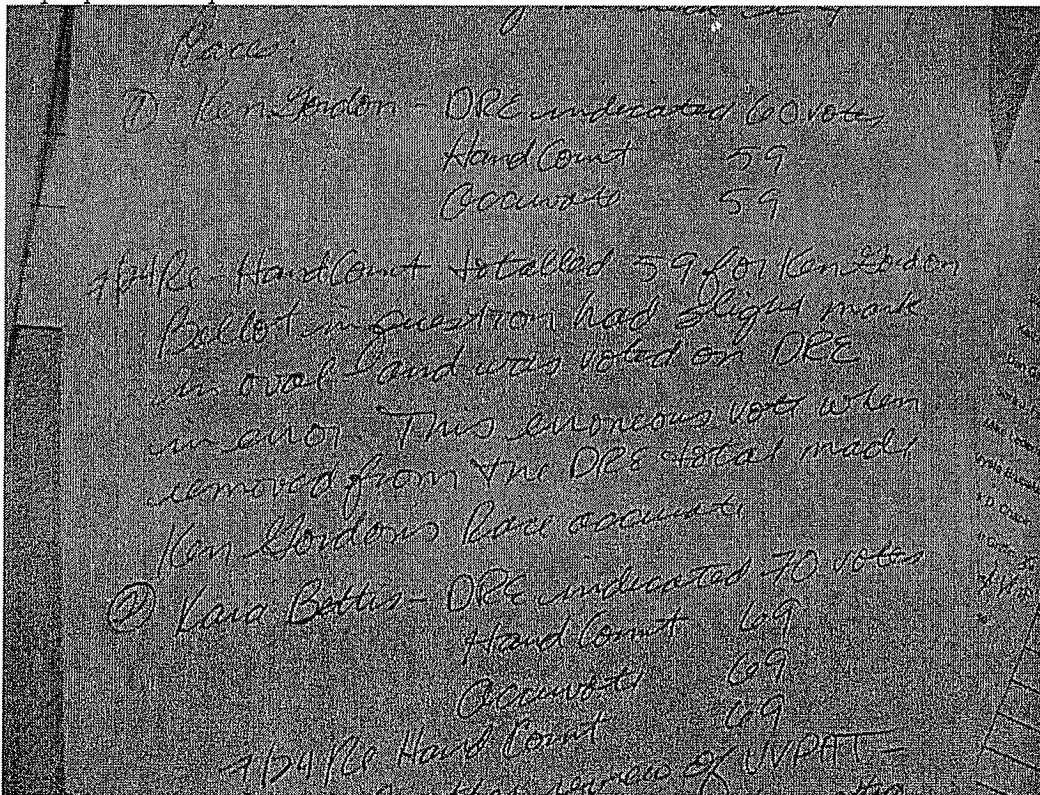 Race:
① Ken Gordon - DRE indicated 60 votes
Hand Count 59
Accuvote 59
7/24 Re-Hand Count totalled 59 for Ken Gordon
Ballot in question had slight mark
in oval and was voted on DRE
in error. This erroneous vote when
removed from the DRE total made
Ken Gordons Race accurate
② Kara Bettis - DRE indicated 70 votes
Hand Count 69
Accuvote 69
7/24 Re Hand Count 69
review of VVPAT -